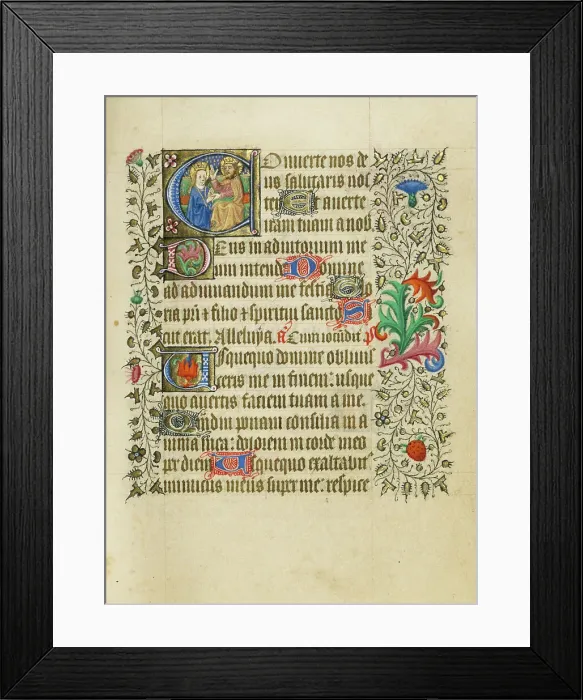 Conuerte nos de
us salutaris nos
ter Et auerte
iram tuam a nob
Deus in adiutorium me
um intende Domine
ad adiuuandum me festina Glo
ria pri et filio et spiritui sancto S
cut erat. Alleluya. a Cum iocudit p
Usquequo domine obliuis
ceris me in finem: usque
quo auertis faciem tuam a me.
Quandiu ponam consilia in a
nima mea: dolorem in corde meo
per diem Usquequo exaltabit
inimicus meus super me: respice